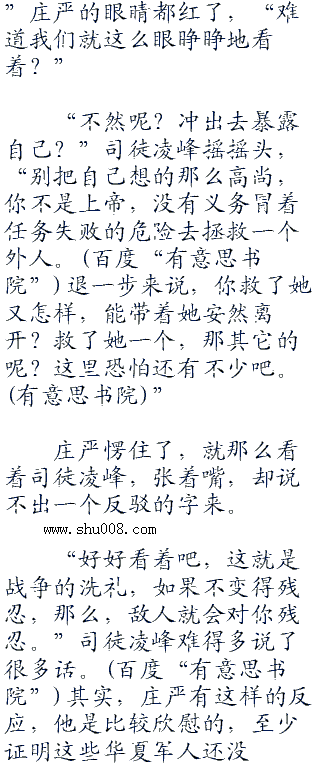 ”庄严的眼睛都红了，“难
道我们就这么眼睁睁地看
着？”
“不然呢？冲出去暴露
自己？”司徒凌峰摇摇头，
“别把自己想的那么高尚，
你不是上帝，没有义务冒着
任务失败的危险去拯救一个
外人。(百度“有意思书
院”)退一步来说，你救了她
又怎样，能带着她安然离
开？救了她一个，那其它的
呢？这里恐怕还有不少吧。
(有意思书院)”
庄严愣住了，就那么看
着司徒凌峰，张着嘴，却说
不出一个反驳的字来。
www.shu008.com
“好好看着吧，这就是
战争的洗礼，如果不变得残
忍，那么，敌人就会对你残
忍。”司徒凌峰难得多说了
很多话。(百度“有意思书
院”)其实，庄严有这样的反
应，他是比较欣慰的，至少
证明这些华夏军人还没